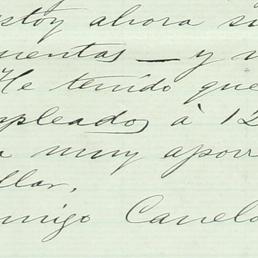 estoy ahora su
mentas — y n
He tenido que
mpleados à 12
a muy aporr
llar.
migo Canelo